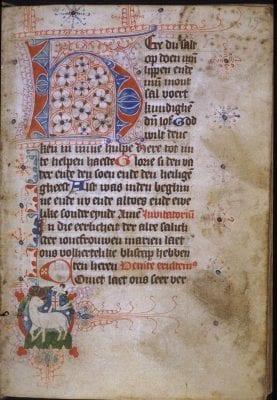 Ere du salt
op doen mijn
lippen ende
mijn mont
sal voert
kundighe
dijn lof God
wilt denc
ken in mine hulpe Here tot mi
te helpen haeste Glorie si den va
der ende den soen ende den heilighē
gheest Alst was inden beghin
ne ende nv ende altoes ende ewe
like sonder eynde Amē Invitatoriū
In die eerlicheit der alre salich
der ioncfrouwen marien laet
ons volherdelike bliscap hebben
den heren Venite exultem9
Comet laet ons seer ver